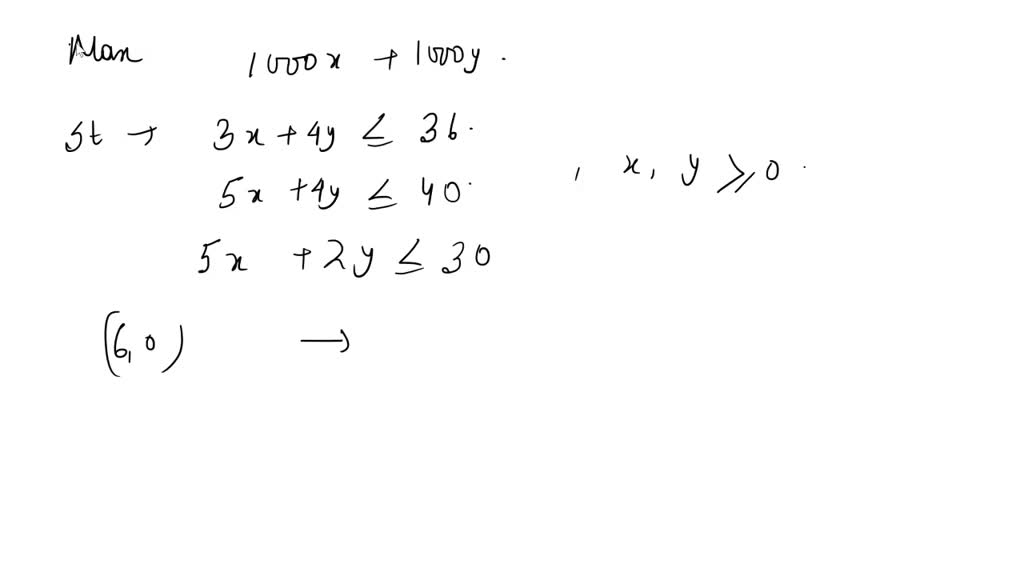 Max 1000x + 1000y .
St → 3x + 4y ≤ 36.
5x + 4y ≤ 40.
, x, y ≥ 0 .
5x + 2y ≤ 30
(6, 0) →